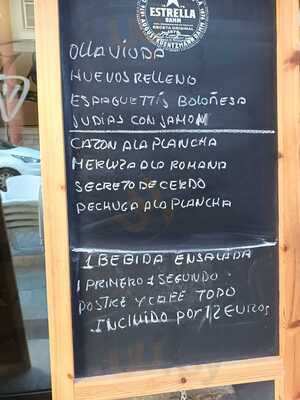 ESTRELLA
DAMM
AUGUST KUENTZMANN DAMM
OLLA VIUDA
HUEVOS RELLENO
ESPAGUETTIS BOLOÑESA
JUDIAS CON JAMON
CAZON A LA PLANCHA
MERLUZA A LA ROMANA
SECRETO DE CERDO
PECHUGA A LA PLANCHA
1 BEBIDA ENSALADA
1 PRIMERO 1 SEGUNDO
POSTRE Y CAFE TODO
INCLUIDO por 12 EUROS